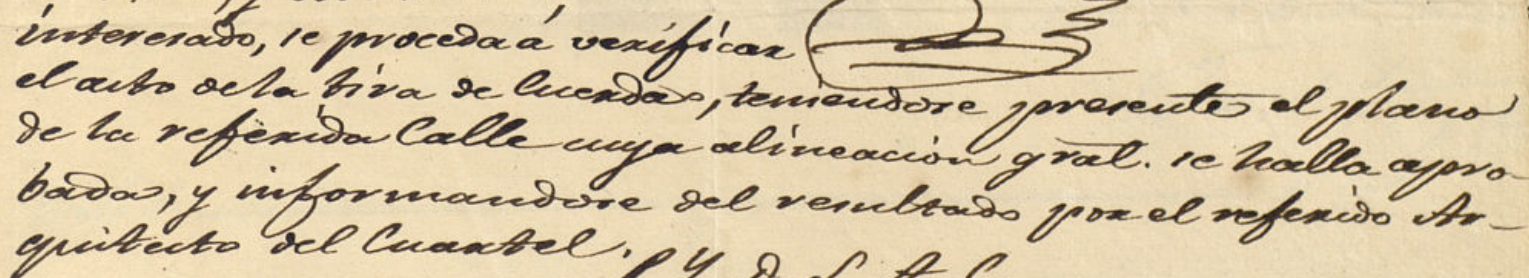 interesado, se proceda á verificar
el acto de la tira de Cuerdas, teniendose presente el plano
de la referida Calle cuya alineacion gral. se halla apro-
bada, y informandose del resultado por el referido Ar-
quitecto del Cuartel.